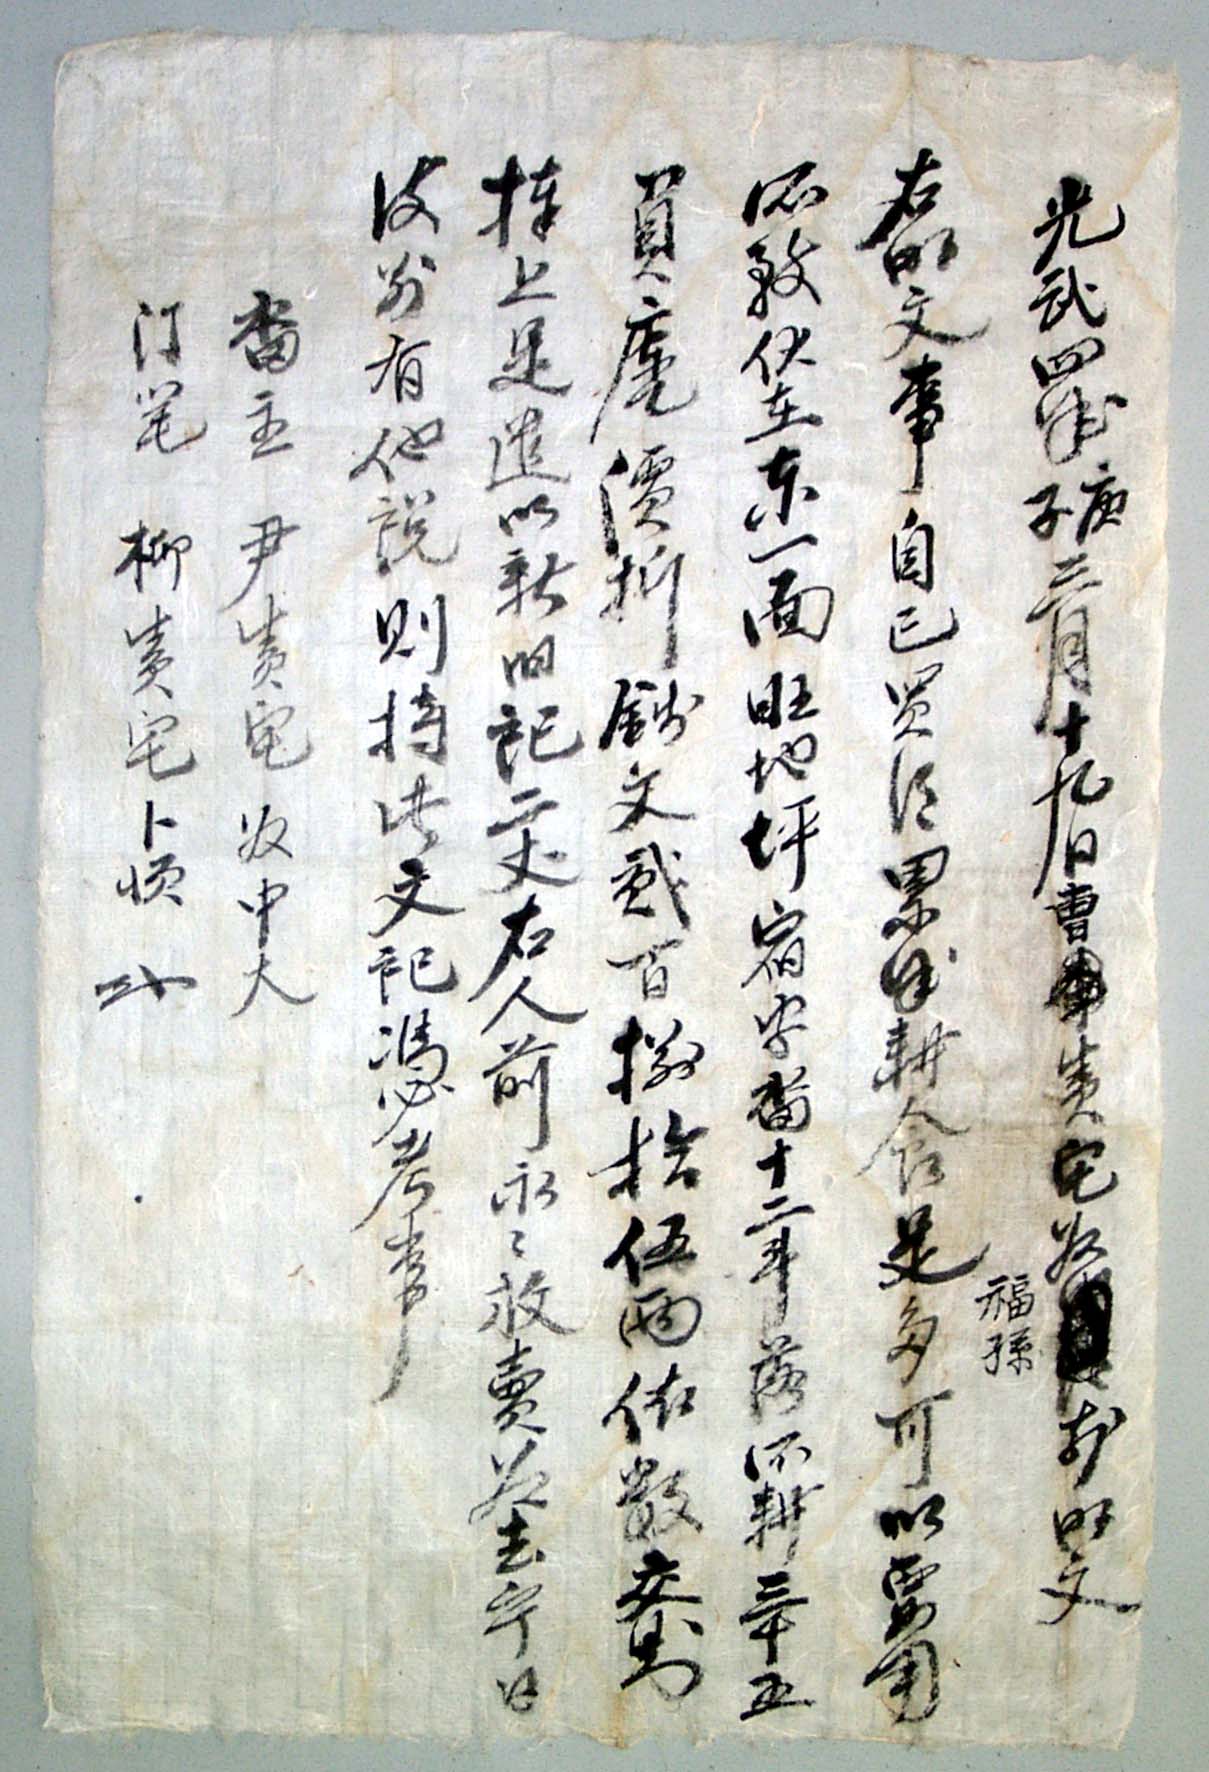 光武四年庚子三月十九日曹生員宅奴福孫前明文
右明文事自己買得累年耕食是多可以要用
所致伏在東一面旺地坪宿字畓十二斗落所耕三十五
員庫價折錢文貳百捌拾伍兩依數交易
捧上是遣以新舊記二丈右人前永〻放賣爲去乎日
後若有他說則持此文記憑考事
畓主 尹生員宅奴中大
訂筆 柳生員宅卜順